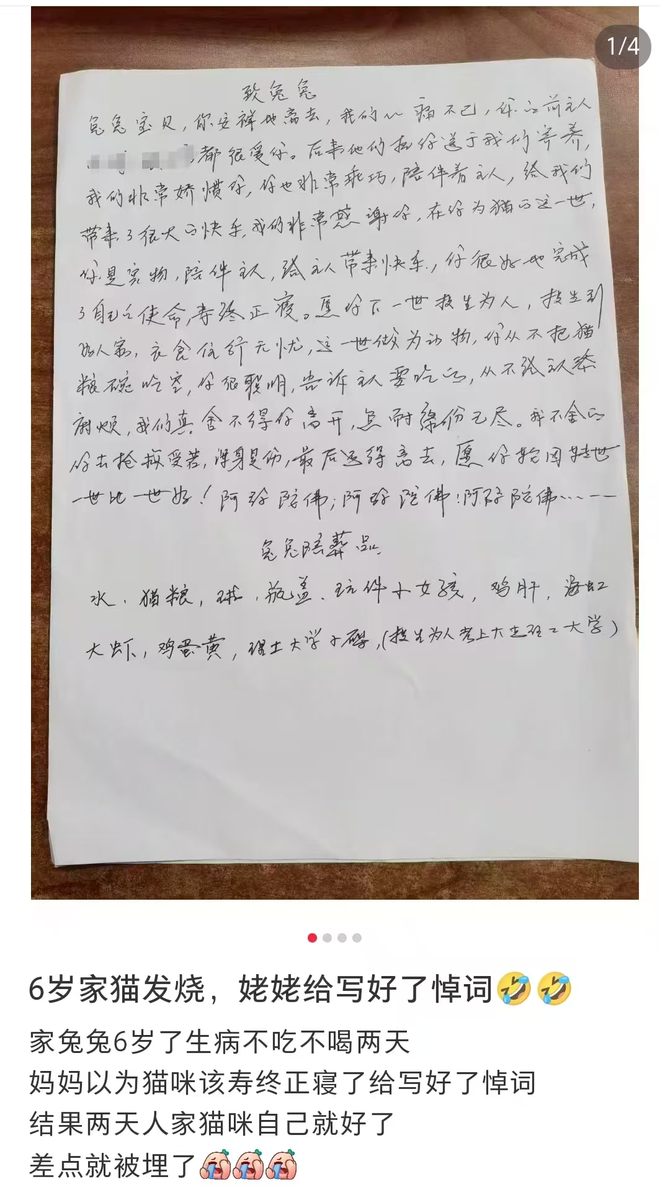 1/4
致兔兔
兔兔宝贝，你安祥地离去，我们心痛不已，你的前主人
都很爱你。后来他们把你送于我们寄养，
我们非常娇惯你，你也非常乖巧，陪伴着主人，给我们
带来了很大的快乐，我们非常感谢你，在你为猫的这一世，
你是宠物，陪伴主人，给主人带来快乐，你很好地完成
了自己的使命，寿终正寝。愿你下一世投生为人，投生到
好人家，衣食住行无忧，这一世做为动物，你从不把猫
粮碗吃空，你很聪明，告诉主人要吃的，从不给主人添
麻烦，我们真舍不得你离开，怎耐缘份已尽。我不舍的
你去抢救受苦，浑身是伤，最后还得离去，愿你轮回转世
一世比一世好！阿弥陀佛；阿弥陀佛！阿弥陀佛……
兔兔陪葬品
水、猫粮，球、瓶盖、玩件小女孩，鸡肝，海虹
大虾，鸡蛋黄，理士大学（投生为人考上大连理工大学）
6岁家猫发烧，姥姥给写好了悼词🤣🤣
家兔兔6岁了生病不吃不喝两天
妈妈以为猫咪该寿终正寝了给写好了悼词
结果两天人家猫咪自己就好了
差点就被埋了